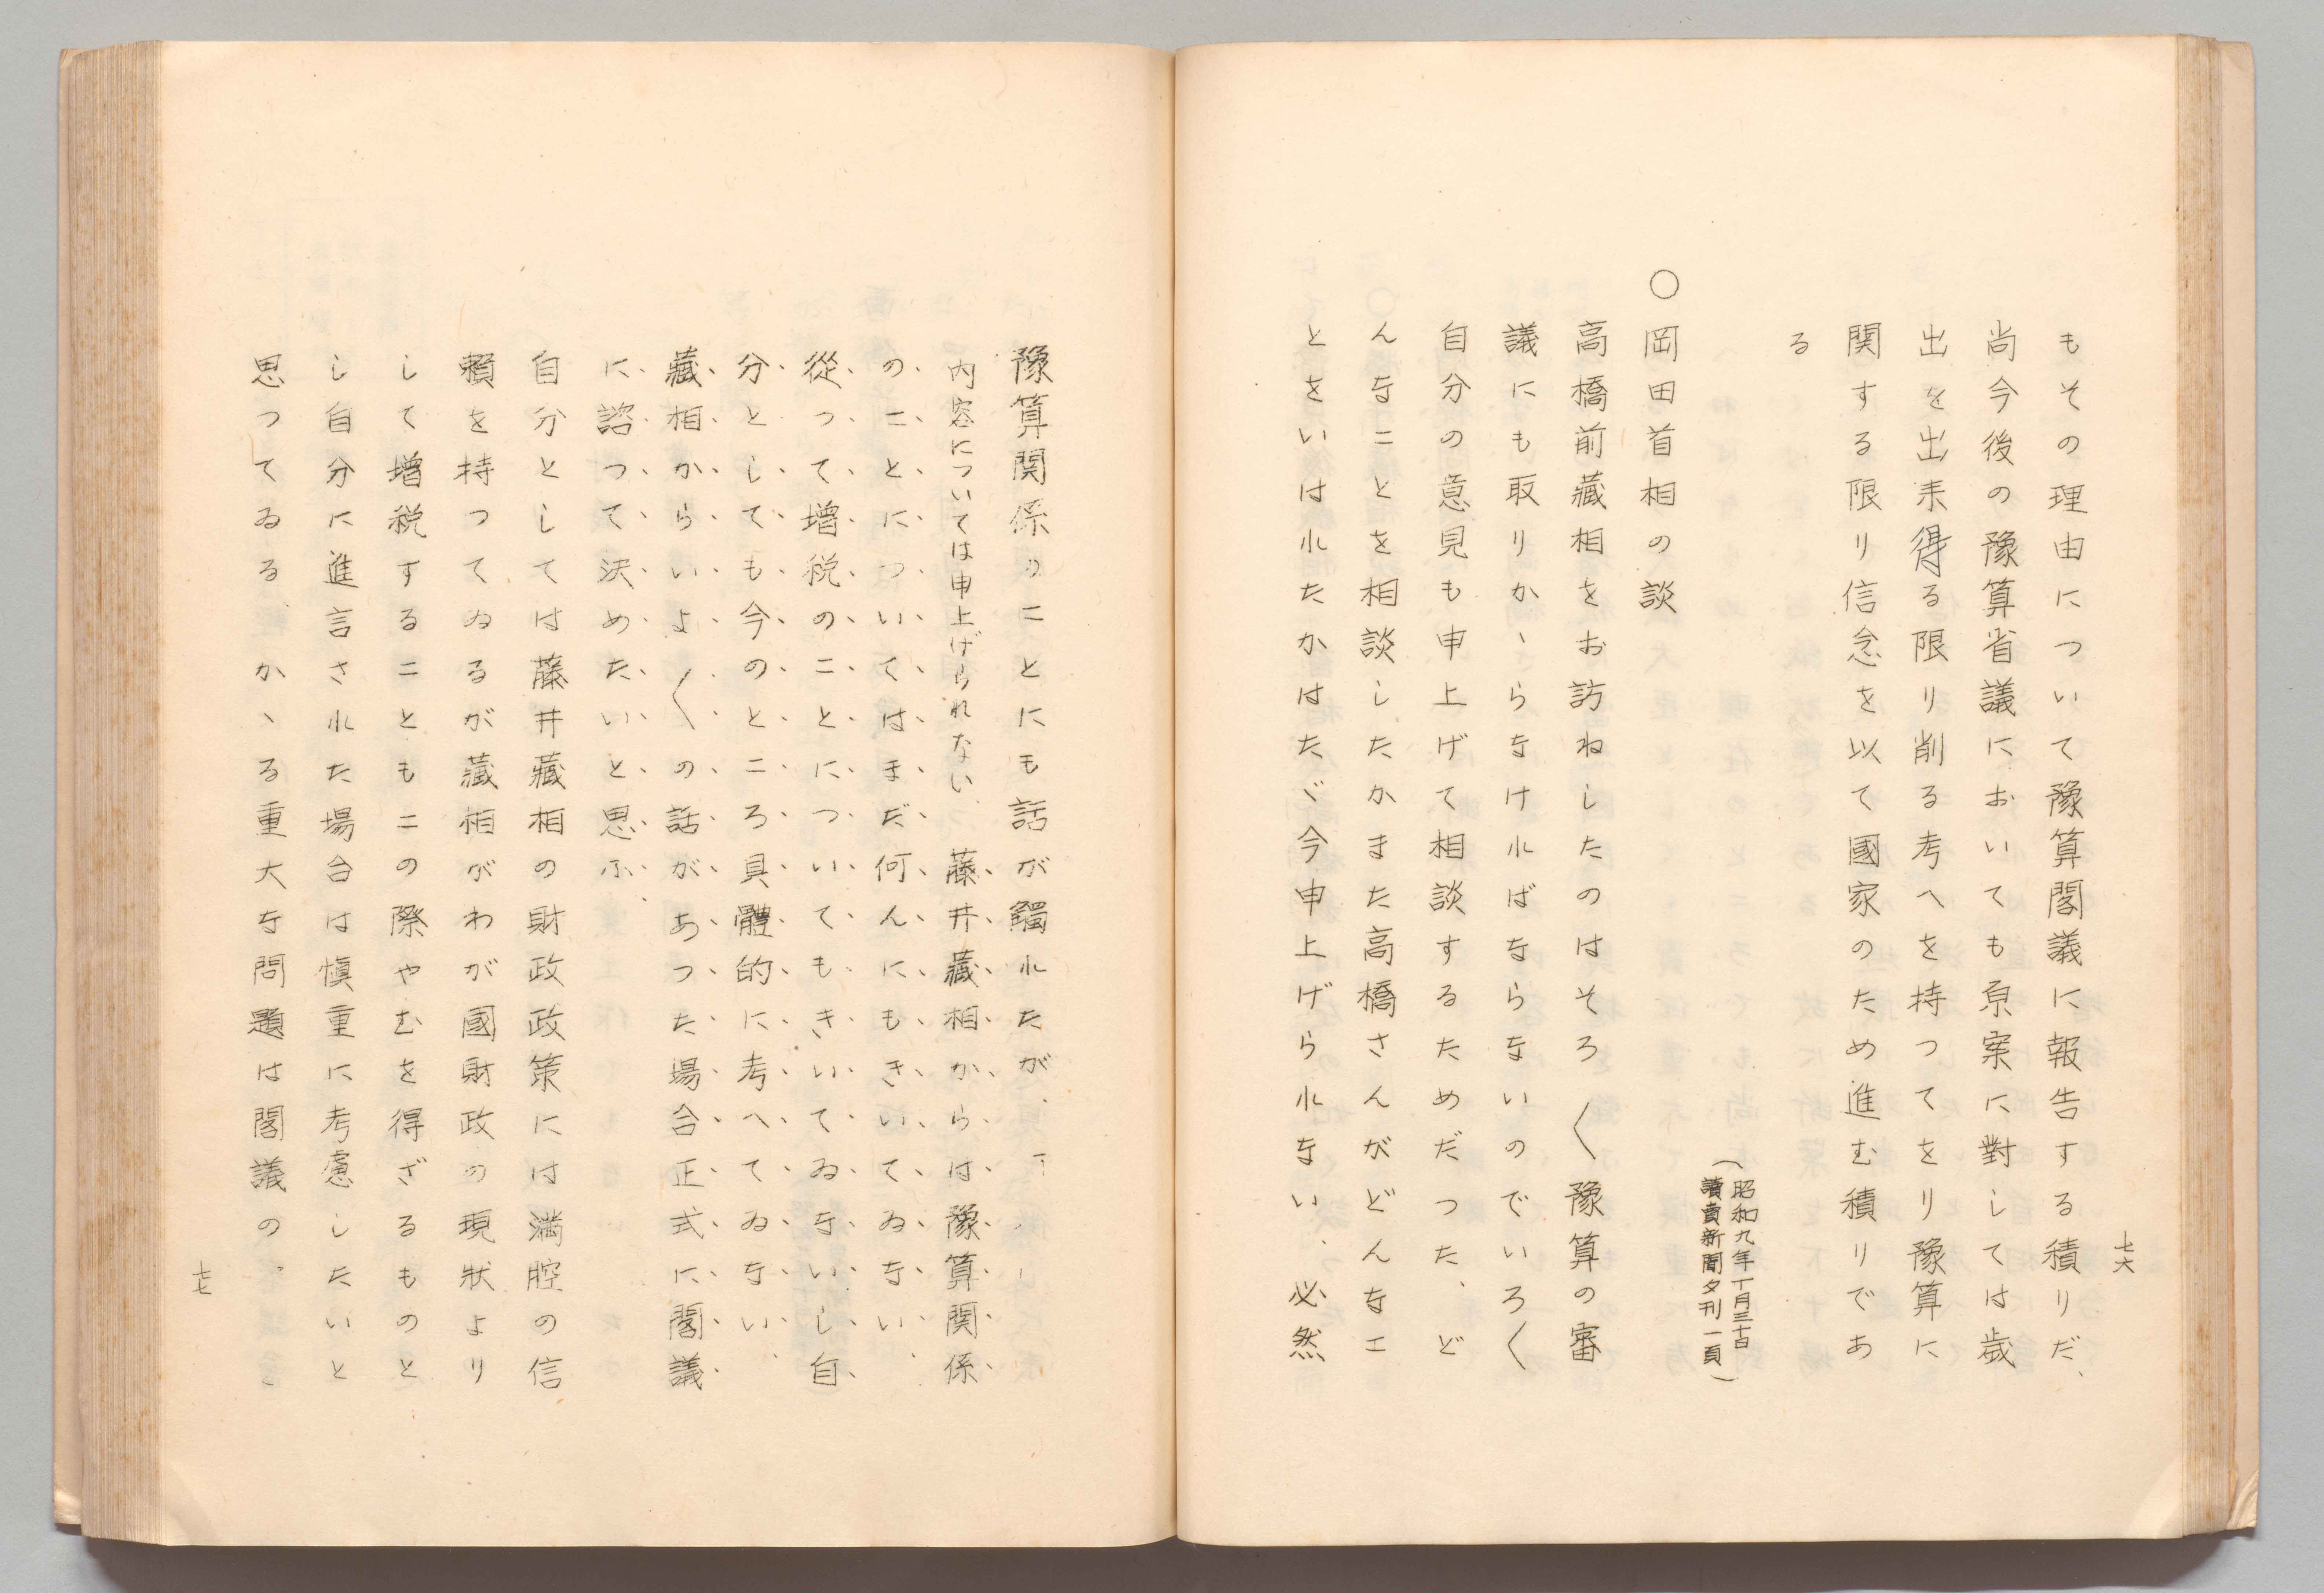 七六
もその理由について豫算閣議に報告する積りだ、
尚今後の豫算省議においても原案に對しては歳
出を出来得る限り削る考へを持つてをり豫算に
関する限り信念を以て國家のため進む積りであ
る
（昭和九年十月三十日
讀賣新聞夕刊一頁）
○岡田首相の談
高橋前藏相をお訪ねしたのはそろ〱豫算の審
議にも取りかゝらなければならないのでいろ〱
自分の意見も申上げて相談するためだつた、ど
んなことを相談したかまた高橋さんがどんなこ
とをいはれたかはたゞ今申上げられない、必然
豫算関係のことにも話が觸れたが、
内容については申上げられない、藤井藏相からは豫算関係
のことについてはまだ何んにもきいてゐない、
從つて増税のことについてもきいてゐないし自
分としても今のところ具體的に考へてゐない、
藏相からいよ〱の話があつた場合正式に閣議
に諮つて決めたいと思ふ、
自分としては藤井藏相の財政政策には満腔の信
賴を持つてゐるが藏相がわが國財政の現狀より
して増税することもこの際やむを得ざるものと
し自分に進言された場合は愼重に考慮したいと
思つてゐる、かゝる重大な問題は閣議の
七七